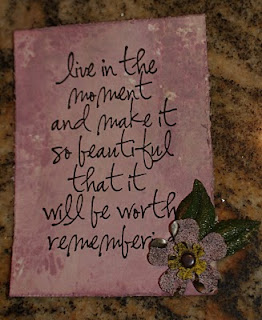 live in the
moment
and make it
so beautiful
that it
will be worth
remember